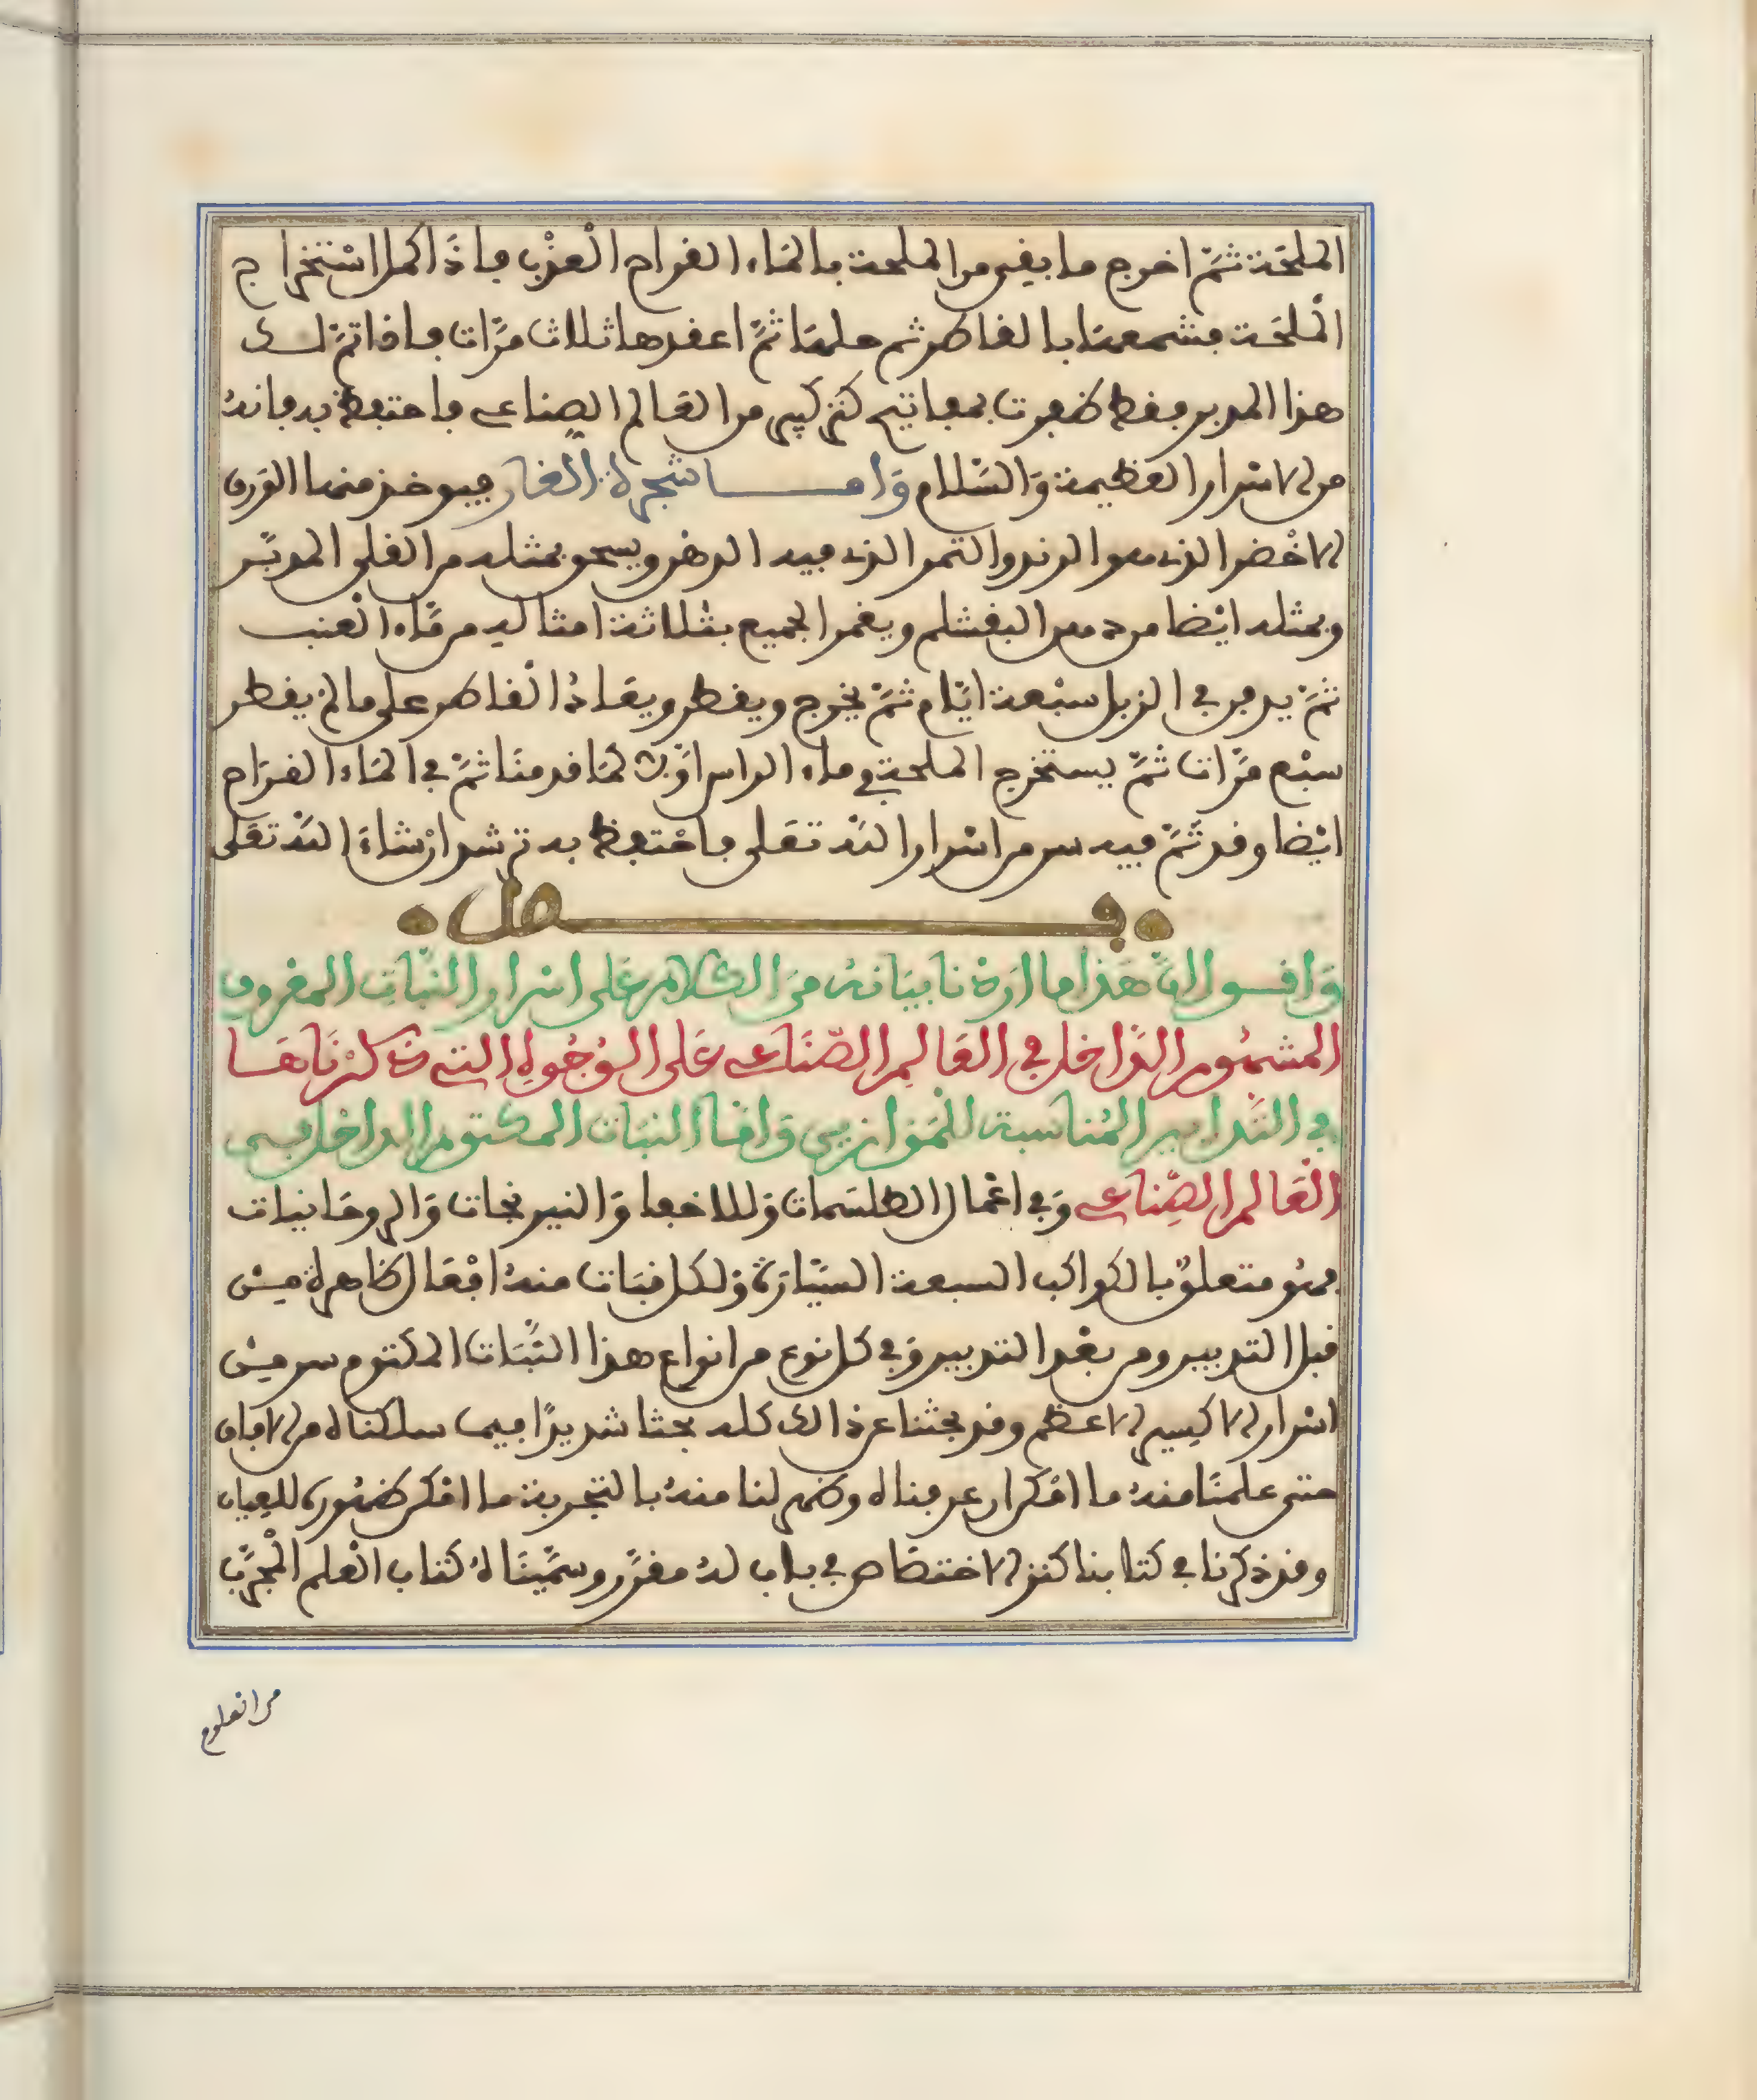 الملحة ثمّ اخرج ما بقي من الملحة بالماء القراح العذب فاذا كمل استخراج
الملحة فشمعها بالقاطر ثم حلها ثمّ اعقدها ثلاث مرّات فاذا تمّ لك
هذا التدبير فقط ظفرت بمفاتيح كنز كبير من العالم الصناعي فاحتفظ به فانه
من الاسرار العظيمة والسّلام وامّا شجرة الغار فيوخذ منها الورق
الاخضر الذي هو الرند والتمر الذي فيه الدهن ويسحق بمثله من القلي المدبّر
وبمثله ايضا من دهن البقشلم ويغمر الجميع بثلاثة امثاله من ماء العنب
ثمّ يدفن في الزبل سبعة ايّام ثمّ يخرج ويقطر ويعاد القاطر على ما لم يقطر
سبع مرّات ثمّ يستخرج الملحة في ماء الراس اوّلا كما قدمنا ثمّ في الماء القراح
ايضا وقد تمّ فيه سر من اسرار الله تعلى فاحتفظ به ترشد ان شاء الله تعلى
فصل
واقول انّ هذا ما اردنا بيانه من الكلام على اسرار النّبات المعروف
المشهور الدّاخل في العالم الصّناعي على الوجوه التي ذكرناها
في التّدابير المناسبة للموازين وامّا النبات المكتوم الداخل في
العالم الصّناعي وفي اعمال الطلسمات وللاخفا والنيرنجات والروحانيات
فهو متعلق بالكواكب السبعة السّيّارة ولكل نبات منه افعال ظاهرة من
قبل التدبير ومن بعد التدبير وفي كل نوع من انواع هذا النّبات المكتوم سر من
اسرار الاكسير الاعظم وقد بحثنا عن ذالك كله بحثا شديدا فيما سلكناه من الافاق
حتى علمنا منه ما امكن ان عرفناه وظهر لنا منه بالتجربة ما امكن ظهوره للعيان
وقد ذكرنا في كتابنا كنز الاختصاص في باب له مفرّد وسمّيناه كتاب العلم المجرّب
من العلوم